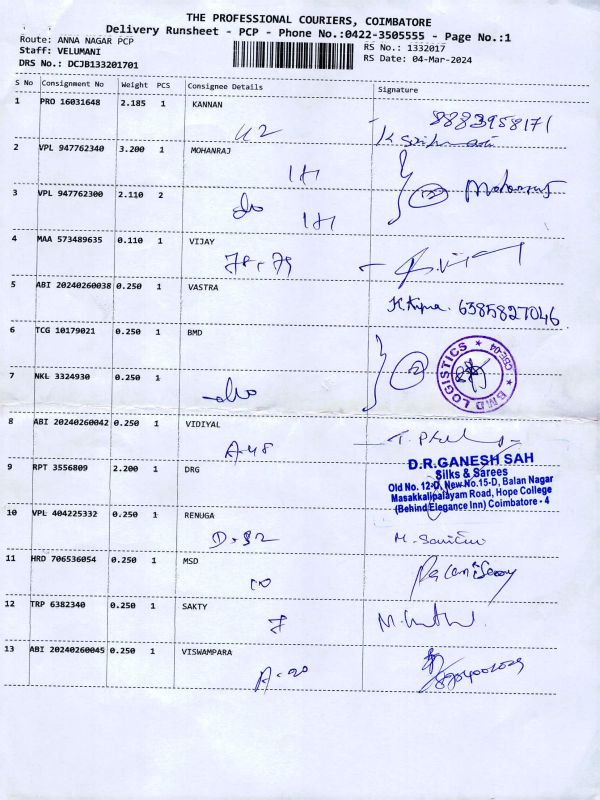 THE PROFESSIONAL COURIERS, COIMBATORE
Delivery Runsheet - PCP - Phone No.:0422-3505555 - Page No.:1
Route: ANNA NAGAR PCP
RS No.: 1332017
Staff: VELUMANI
RS Date: 04-Mar-2024
DRS No.: DCJB133201701
S No Consignment No Weight PCS Consignee Details Signature
1 PRO 16031648 2.185 1 KANNAN
8883958171
2 VPL 947762340 3.200 1 MOHANRAJ
3 VPL 947762300 2.110 2
do
Mohanraj
4 MAA 573489635 0.110 1 VIJAY
78,79
5 ABI 20240260038 0.250 1 VASTRA
6385827046
6 TCG 10179021 0.250 1 BMD
BMD LOGISTICS * CBE-04 *
7 NKL 3324930 0.250 1
do
8 ABI 20240260042 0.250 1 VIDIYAL
A-48
9 RPT 3556809 2.200 1 DRG
D.R.GANESH SAH
Silks & Sarees
Old No. 12-D, New No.15-D, Balan Nagar
Masakkalipalayam Road, Hope College
(Behind Elegance Inn) Coimbatore - 4
10 VPL 404225332 0.250 1 RENUGA
11 HRD 706536054 0.250 1 MSD
12 TRP 6382340 0.250 1 SAKTY
7
13 ABI 20240260045 0.250 1 VISWAMPARA
A-20